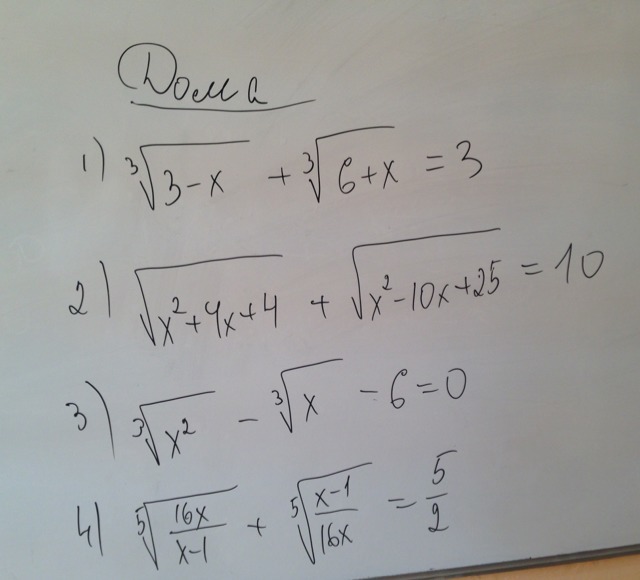 Дома
1) ∛(3-x) + ∛(6+x) = 3
2) √(x²+4x+4) + √(x²-10x+25) = 10
3) ∛(x²) - ∛x - 6 = 0
4) ⁵√(16x/(x-1)) + ⁵√((x-1)/16x) = 5/2